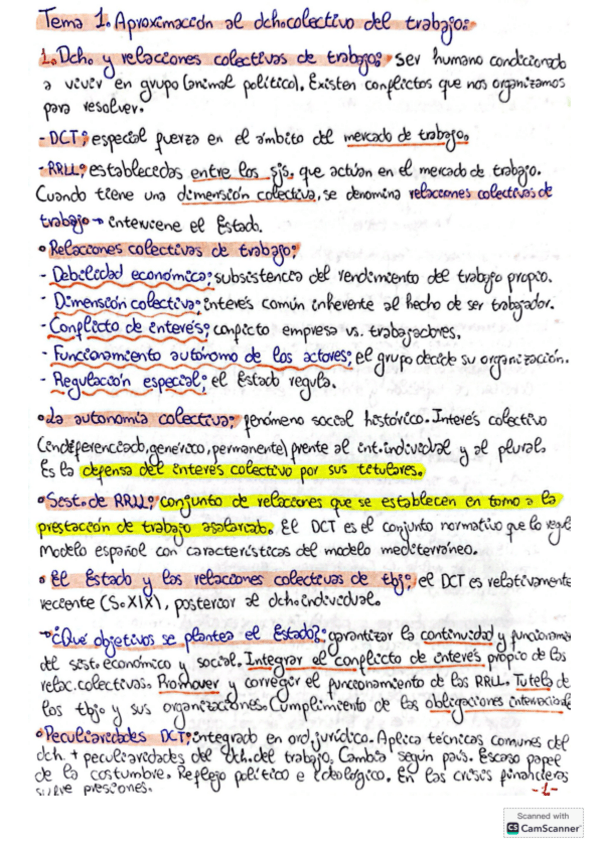 Tema 1. Aproximación al dcho colectivo del trabajo:
1. Dch. y relaciones colectivas de trabajo: ser humano condicionado
a vivir en grupo (animal político). Existen conflictos que nos organizamos
para resolver.
- DCT; especial fuerza en el ámbito del mercado de trabajo.
- RRLL; establecidas entre los sjs. que actúan en el mercado de trabajo.
Cuando tiene una dimensión colectiva, se denomina relaciones colectivas de
trabajo → interviene el Estado.
• Relaciones colectivas de trabajo;
- Debilidad económica; subsistencia del rendimiento del trabajo propio.
- Dimensión colectiva; interés común inherente al hecho de ser trabajador.
- Conflicto de interés; conflicto empresa vs. trabajadores.
- Funcionamiento autónomo de los actores; el grupo decide su organización.
- Regulación especial; el Estado regula.
• La autonomía colectiva; fenómeno social histórico. Interés colectivo
(indiferenciado, genérico, permanente) frente al int. individual y al plural.
Es la defensa del interés colectivo por sus titulares.
• Sist. de RRLL; conjunto de relaciones que se establecen en torno a la
prestación de trabajo asalariado. El DCT es el conjunto normativo que lo regl
Modelo español con características del modelo mediterráneo.
• El Estado y las relaciones colectivas de tbj; el DCT es relativamente
reciente (S. XIX), posterior al dcho individual.
→ ¿Qué objetivos se plantea el Estado?; garantizar la continuidad y funcionam
del sist. económico y social. Integrar el conflicto de interés propio de las
relac. colectivas. Promover y corregir el funcionamiento de las RRLL. Tutela de
los tbjo y sus organizaciones. Cumplimiento de las obligaciones internacionale
• Peculiaridades DCT; integrado en ord. jurídico. Aplica técnicas comunes del
dch. + peculiaridades del dch. del trabajo. Cambia según país. Escaso papel
de la costumbre. Reflejo político e ideológico. En las crisis financieras
sufre presiones.
-1-
Scanned with
CS CamScanner